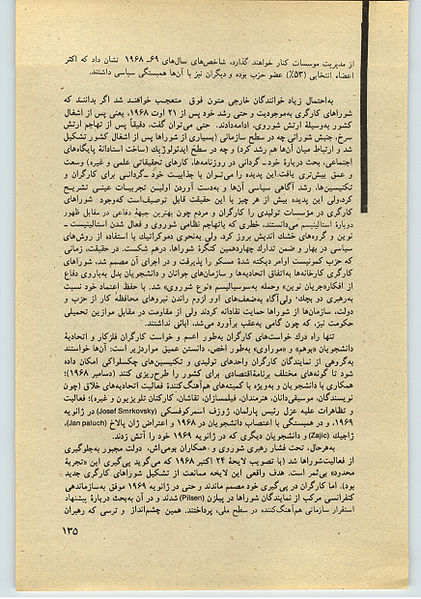 از مدیریت موسسات کنار خواهند گذارد، شاخص‌های سال‌های ۶۹ـ ۱۹۶۸ نشان داد که اکثر
اعضاء انتخابی (۵۳٪) عضو حزب بوده و دیگران نیز با آن‌ها همبستگی سیاسی داشتند.
به‌احتمال زیاد خوانندگان خارجی متون فوق متعجب خواهند شد اگر بدانند که
شوراهای کارگری به‌موجودیت و حتی رشد خود پس از ۲۱ اوت ۱۹۶۸، یعنی پس از اشغال
کشور به‌وسیلهٔ ارتش شوروی، ادامه‌دادند. حتی می‌توان گفت، دقیقاً پس از تهاجم ارتش
سرخ، جنبش شورائی چه در سطح سازمانی (بسیاری از شوراها پس از اشغال کشور تشکیل
شد و ارتباط میان آن‌ها هم رشد کرد) و چه در سطح ایدئولوژیک (ساخت استادانهٔ پایگاه‌های
اجتماعی، بحث دربارهٔ خود ـ گردانی در روزنامه‌ها، کارهای تحقیقاتی علمی و غیره) وسعت
و عمق بیش‌تری یافت. این پدیده را می‌توان با جذابیت خود ـ گردانی برای کارگران و
تکنیسین‌ها، رشد آگاهی سیاسی آن‌ها و به‌دست آوردن اولین تجربیات عینی تشریح
کرد، ولی این پدیده بیش از هر چیز با این حقیقت قابل توصیف‌است که‌وجود شوراهای
کارگری در مؤسسات تولیدی را کارگران و مردم چون بهترین جبههٔ دفاعی در مقابل ظهور
دوبارهٔ استالینیسم می‌دانستند، خطری که باتهاجم نظامی شوروی و فعال شدن استالینیست ـ
نوین و گروه‌های خشک اندیش بروز کرد. ولی به‌نحوی دموکراتیک با استفاده از روش‌های
سیاسی در بهار و ضمن تدارک چهاردهمین کنگرهٔ شوراها، درهم شکست. در حقیقت، زمانی
که حزب کمونیست اوامر دیکته شدهٔ مسکو را پذیرفت و در اجرای آن مصمم شد، شوراهای
کارگری کارخانه‌ها به‌اتفاق اتحادیه‌ها و سازمان‌های جوانان و دانشجویان بدل به‌باروی دفاع
از افکار«جریان نوین» وحمله به‌سوسیالیسم «نوع شوروی» شد. با حفظ اعتماد خود نسبت
به‌رهبری دوبچک؛ ولی‌آگاه به‌ضعف‌های او و لزوم راندن نیروهای محافظه کار از حزب و
دولت، سازمان‌ها از شوراها حمایت نقادانه کردند ولی از مقاومت در مقابل موازین تحمیلی
حکومت نیز، که چون گامی به‌عقب برآورد می‌شد، ابائی نداشتند.
تنها راه درک خواست‌های کارگران به‌طور اعم و خواست کارگران فلزکار و اتحادیهٔ
دانشجویان «بوهم» و «موراوی» به‌طور اخص، دانستن عمیق مواردزیر است: آن‌ها خواستند
به‌گروهی از نمایندگان کارگران واحدهای تولیدی و تکنیسین‌های چکسلواکی امکان داده
شود تا گونه‌های مختلف برنامهٔ‌اقتصادی برای کشور را طرح‌ریزی کنند (دسامبر ۱۹۶۸)؛
همکاری با دانشجویان و به‌ویژه با کمیته‌های هم‌آهنگ‌کنندهٔ فعالیت اتحادیه‌های خلاق (چون
نویسندگان، موسیقی‌دانان، هنرمندان، فیلمسازان، نقاشان، کارکنان تلویزیون و غیره)؛ فعالیت
و تظاهرات علیه عزل رئیس پارلمان، ژوزف اسمرکوفسکی (Josef Smrkovsky) در ژانویه
۱۹۶۹، و در همبستگی با اعتصاب دانشجویان در ۱۹۶۸ و اعتراض ژان پالاخ (Jan paluch)،
زاجیک (Zajic) و دانشجویان دیگری که در ژانویه ۱۹۶۹ خود را آتش زدند.
به‌هرحال، تحت فشار رهبری شوروی و همکاران بومی‌اش، دولت مجبور به‌جلوگیری
از فعالیت‌شوراها شد (با تصویب لایحهٔ ۲۴ اکتبر ۱۹۶۸ که می‌گوید پی‌گیری این «تجربهٔ
محدود» بی‌ثمر است. هدف واقعی این لایحه ممانعت از تشکیل شوراهای کارگری جدید
بود). اما کارگران در پی‌گیری خود مصمم ماندند و حتی در ژانویه ۱۹۶۹ موفق به‌سازماندهی
کنفرانسی مرکب از نمایندگان شوراها در پیلزن (Pilsen) شدند و در آن به‌بحث دربارهٔ پیشنهاد
استقرار سازمانی هم‌آهنگ‌کننده در سطح ملی، پرداختند. همین چشم‌انداز و ترسی که رهبران
۱۳۵